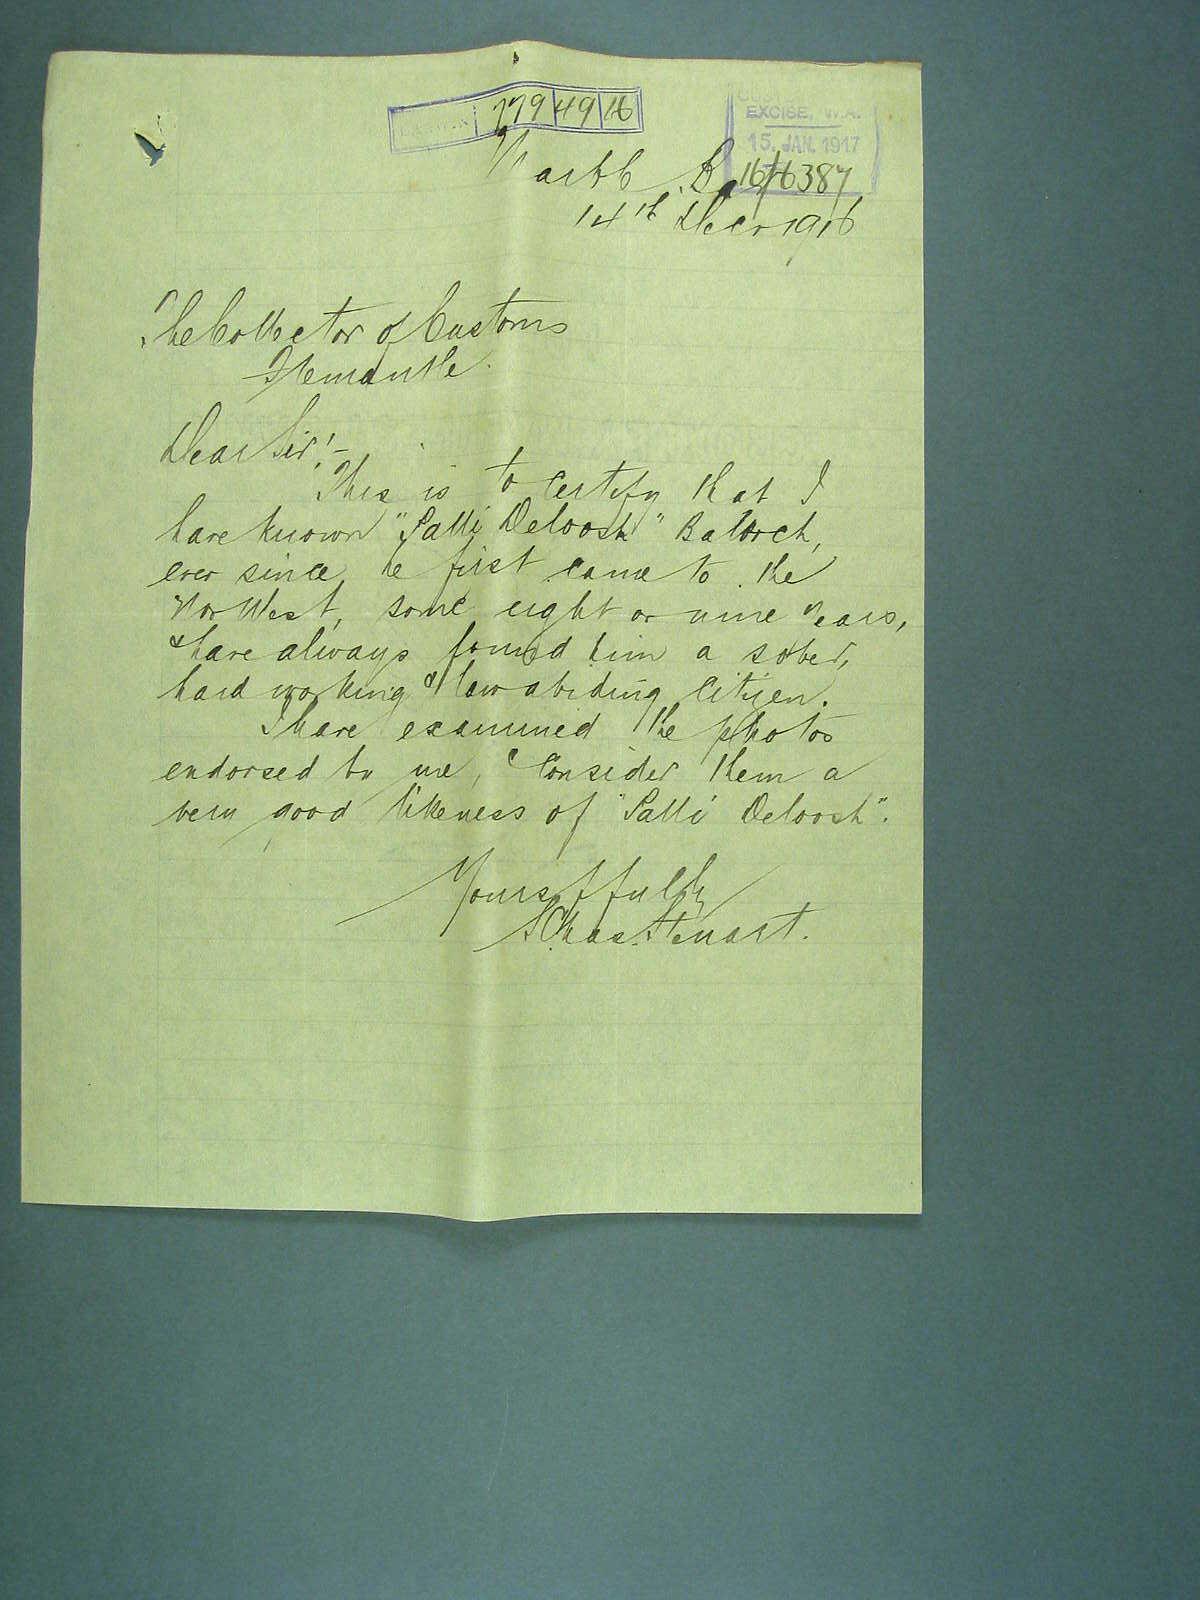 779 49 16
EXCISE, W.A.
15. JAN. 1917
16/16387
14th Decr 1916
The Collector of Customs
Fremantle.
Dear Sir!-
This is to certify that I
have known "Salli Deloosh" Balooch,
ever since he first came to the
Nor West, some eight or nine years,
& have always found him a sober,
hard working & law abiding citizen.
I have examined the photos
endorsed by me, & Consider them a
very good likeness of "Salli Deloosh".
Yours ffully
Chas. Stewart.